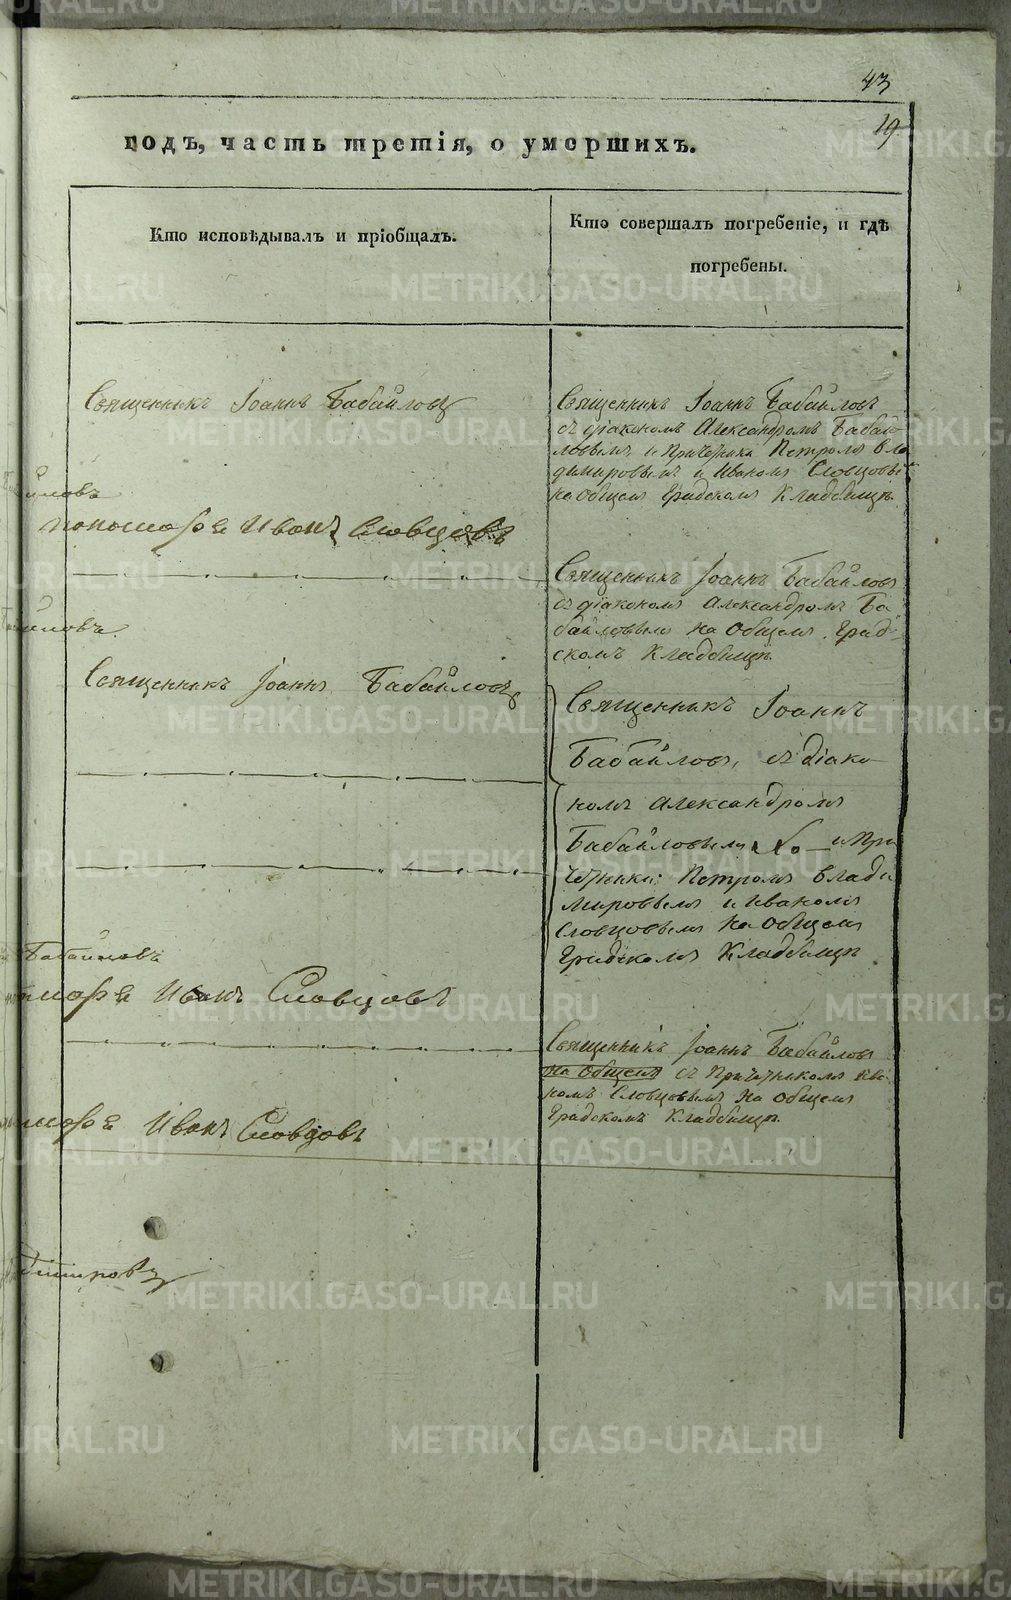 43
19
годъ, часть третія, о умершихъ.
Кто исповѣдывалъ и пріобщалъ.
Кто совершалъ погребеніе, и гдѣ
погребены.
Священникъ Іоаннъ Бабайловъ
Священникъ Іоаннъ Бабайловъ
съ діакономъ Александромъ Бабай-
ловымъ и Причетники Петромъ Вла
димировымъ и Иваномъ Словцовы
на общемъ Градскомъ Кладбищѣ.
йловъ
пономарь Иванъ Словцовъ
Священникъ Іоаннъ Бабайловъ
съ діакономъ Александромъ Ба-
байловымъ на общемъ Град-
скомъ Кладбищѣ.
йловъ.
Священникъ Іоаннъ Бабайловъ
Священникъ Іоаннъ
Бабайловъ, съ діако-
номъ Александромъ
Бабайловымъ и При
четники: Петромъ Влади
мировымъ и Иваномъ
Словцовымъ на общемъ
Градскомъ Кладбищѣ
Бабайловъ
марь Иванъ Словцовъ
Священникъ Іоаннъ Бабайловъ
на общемъ съ Причетникомъ Ива-
номъ Словцовымъ на общемъ
Градскомъ Кладбищѣ.
марь Иванъ Словцовъ
димировъ
METRIKI.GASO-URAL.RU